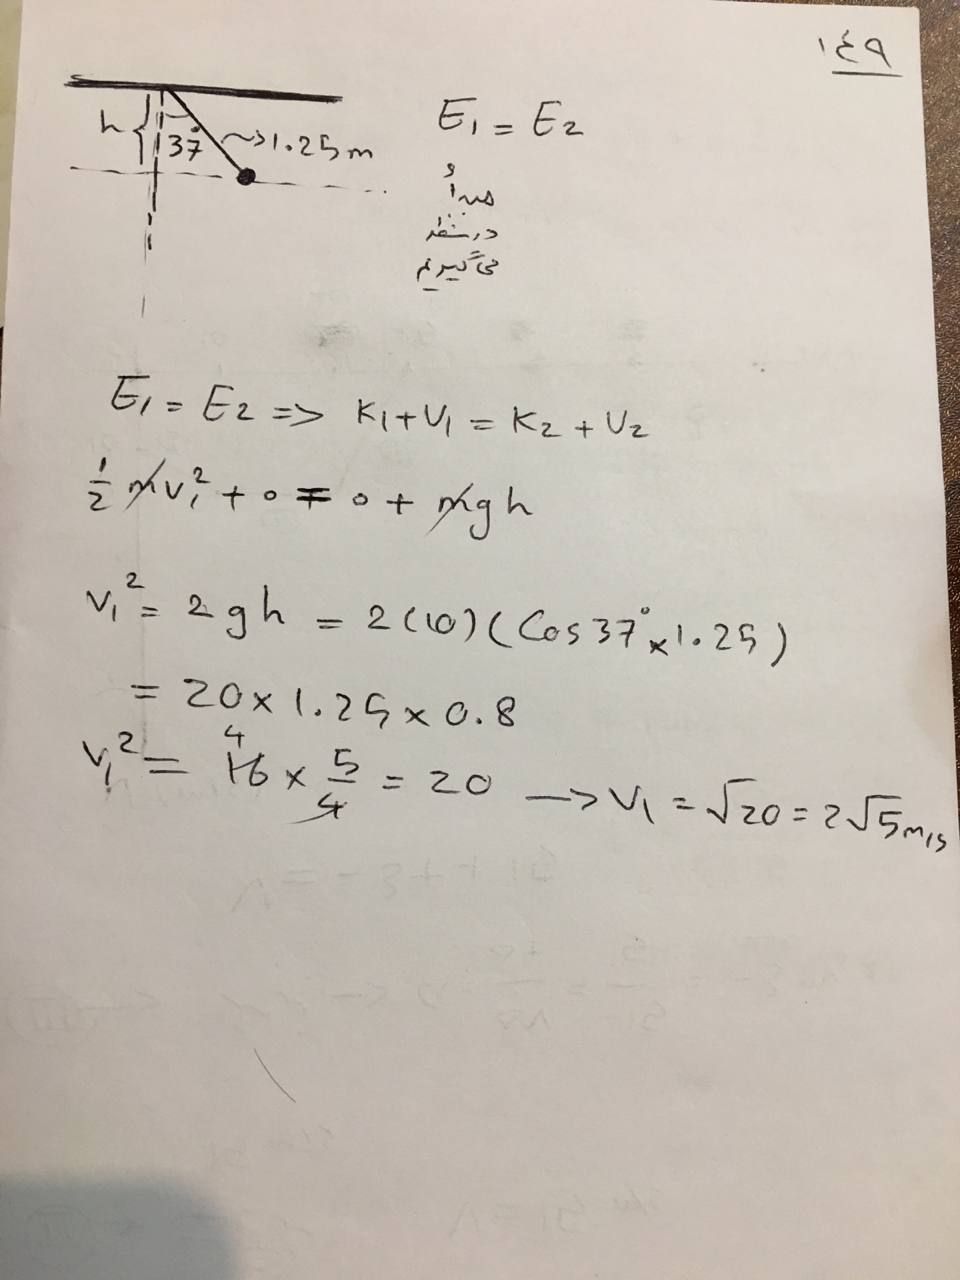 ۱۴۹
h 37° 1.25m
E₁ = E₂
را
مبدأ
در نظر
می‌گیریم
E₁ = E₂ => K₁ + U₁ = K₂ + U₂
1/2 mv₁² + 0 = 0 + mgh
v₁² = 2gh = 2(10)(Cos37° × 1.25)
= 20 × 1.25 × 0.8
v₁² = 16 4 × 5/4 = 20 → v₁ = √20 = 2√5 m/s